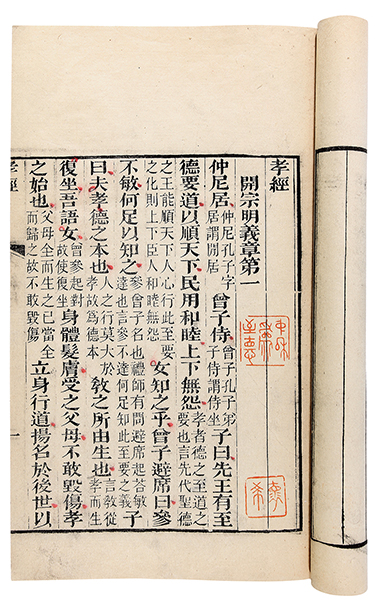 孝經
開宗明義章第一
仲尼居仲尼孔子字居謂閒居曾子侍曾子孔子弟子侍謂侍坐子曰先王有至
德要道以順天下民用和睦上下無怨孝者德之至道之要也言先代聖德
之王能順天下人心行此至要之化則上下臣人和睦無怨女知之乎曾子避席曰參
不敏何足以知之參曾子名也禮師有問避席起荅敬達也言參不達何足知此至要之義子
曰夫孝德之本也人之行莫大於孝故為德本敎之所由生也言敎從孝而生
復坐吾語女曾參起對故使復坐身體髮膚受之父母不敢毀傷孝
之始也父母全而生之己當全而歸之故不敢毀傷立身行道揚名於後世以
孝經
一